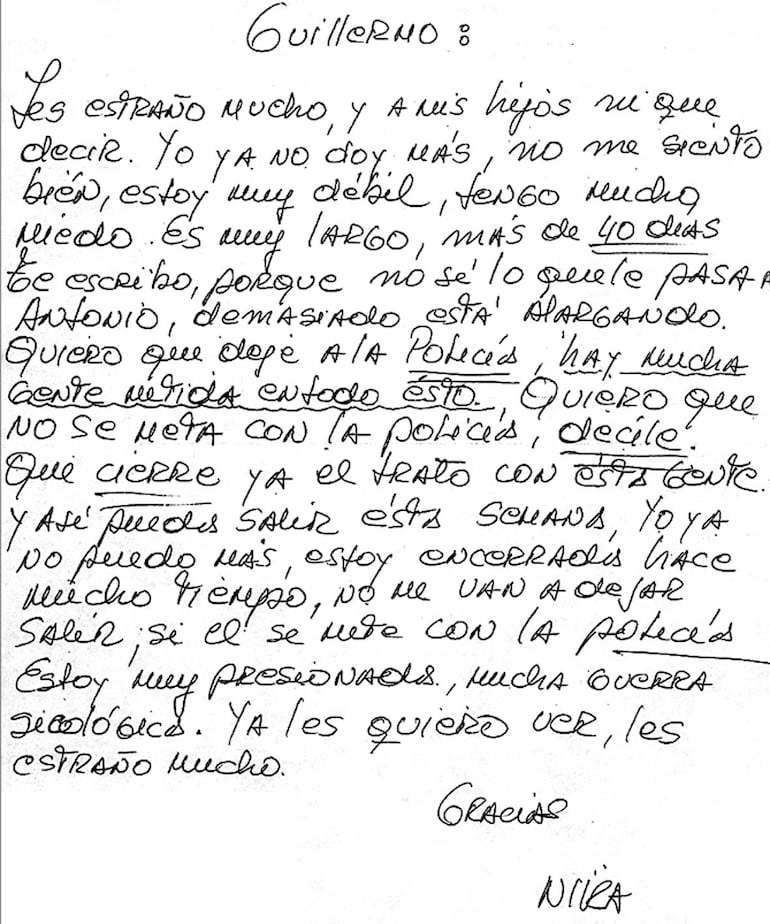 Guillermo :
Les estraño mucho, y a mis hijos ni que
decir. Yo ya no doy más, no me siento
bién, estoy muy débil, tengo mucho
miedo. Es muy largo, más de 40 dias
te escribo, porque no sé lo que le pasa a
Antonio, demasiado está alargando.
Quiero que deje a la Policía, hay mucha
gente metida en todo ésto. Quiero que
no se meta con la policía, decile.
Que cierre ya el trato con ésta gente.
Y asé pueda salir ésta semana, Yo ya
no puedo más, estoy encerrada hace
mucho tiempo, no me van a dejar
salir, si el se mete con la policía
Estoy muy presionada, mucha guerra
sicológica. Ya les quiero ver, les
estraño mucho.
Gracias